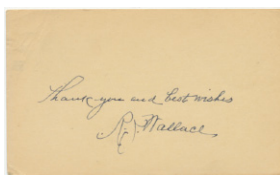 Thank you and best wishes
R. J. Wallace